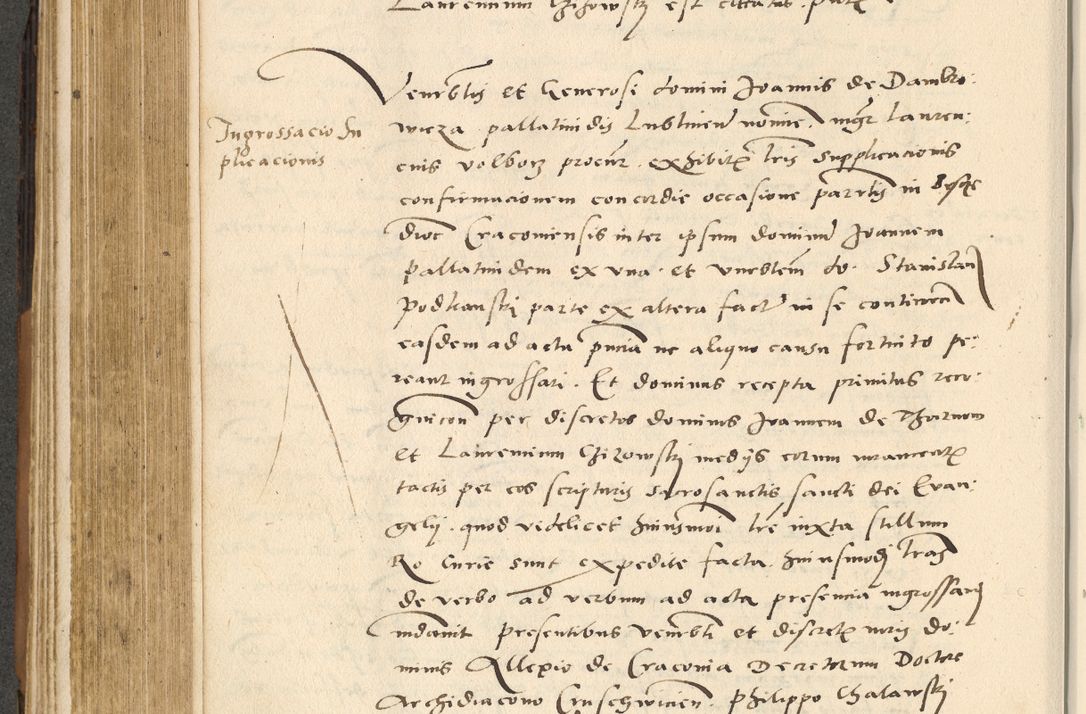 Laurencium Chizowskj est citatus
Venerblis et Generosi domini Joannis de Dambro:
Ingrossacio su
plicacionis
wicza pallatinidis Lublinen nomine mgr Lauren:
cius volborz procur exhibitis lris supplicacionis
confirmacionem concordie occasione parrtis in
dioc Cracoviensis inter ipsum dominum Joannem
pallatinidem ex vna et vnerblem do Stanislau
Podlanskj parte ex altera fact in se continen
easdem ad acta pncia ne aliquo casu fortuito pe:
reant ingrossari. Et dominus recepta primitus reco:
gnicon per discretos dominos Joannem de Tharnow
et Laurencium Chizowskj medys eorum iuramentis
tactis per eos scripturis sacrosanctis sancti dei Evan:
gelij. quod videlicet huiusmoi lre iuxta stillum
Ro Curie sunt expedite facta. huiusmodj lras
de verbo ad verbum ad acta presencia ingrossarj
mdauit presentibus venerbli et discretis viris do:
minis Allexio de Cracovia Decretorum Doctore
Archidiacono Cruschwicien. Philippo Chalawskj